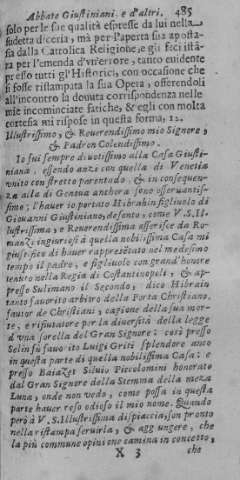 Abbate Giustiniani. e d'altri. 485
solo per le sue qualità espresse da lui nella
sudetta diceria, ma per l'aperta sua aposta-
sia dalla Cattolica Religione, e gli feci ista-
za per l'emenda d'vn'errore, tanto euidente
presso tutti gl'Historici, con occasione che
si fosse ristampata la sua Opera, offerendoli
all'incontro la douuta corrispondenza nelle
mie incominciate fatiche, & egli con molta
cortesia mi rispose in questa forma, 12.
Illustrissimo, & Reuerendissimo mio Signore,
& Padron Colendissimo.
Io fui sempre diuotissimo alla Casa Giusti-
niana, essendo anzi con quella di Venetia
vnito con stretto parentado. & in consequen-
za alla di Genoua anchora sono osseruantis-
simo: l'hauer io portato Hibrahin figliuolo di
Giouanni Giustiniano, defonto, come V.S. Il-
lustrissima, e Reuerendissima asserisce da Ro-
manzi ingiuriosi à quella nobilissima Casa mi
giustifico di hauer rappresētato nel medesimo
tempo il padre, e figliuolo con grand'honore
tenuto nella Regia di Costantinopoli, & ap-
presso Sulimano il Secondo, dico Hibrain
tanto fauorito arbitro della Porta Christiano,
fautor de Christiani, cagione della sua mor-
te, e rifiutatore per la diuersità della legge
d'vna sorella del Gran Signore: così presso
Selin sù fauorito Luigi Griti splendore anco
in questa parte di quella nobilissima Casa: e
presso Baiazet Siluio Piccolomini honorato
dal Gran Signore della Stemma della meza
Luna, onde non vedo, come possa in questa
parte hauer reso odioso il mio nome. Quando
però à V.S. Illustrissima dispiaccia, son pronto
nella ristampa seruirla, & aggiungere, che
la più commune opinione camina in concetto,
X 3 che